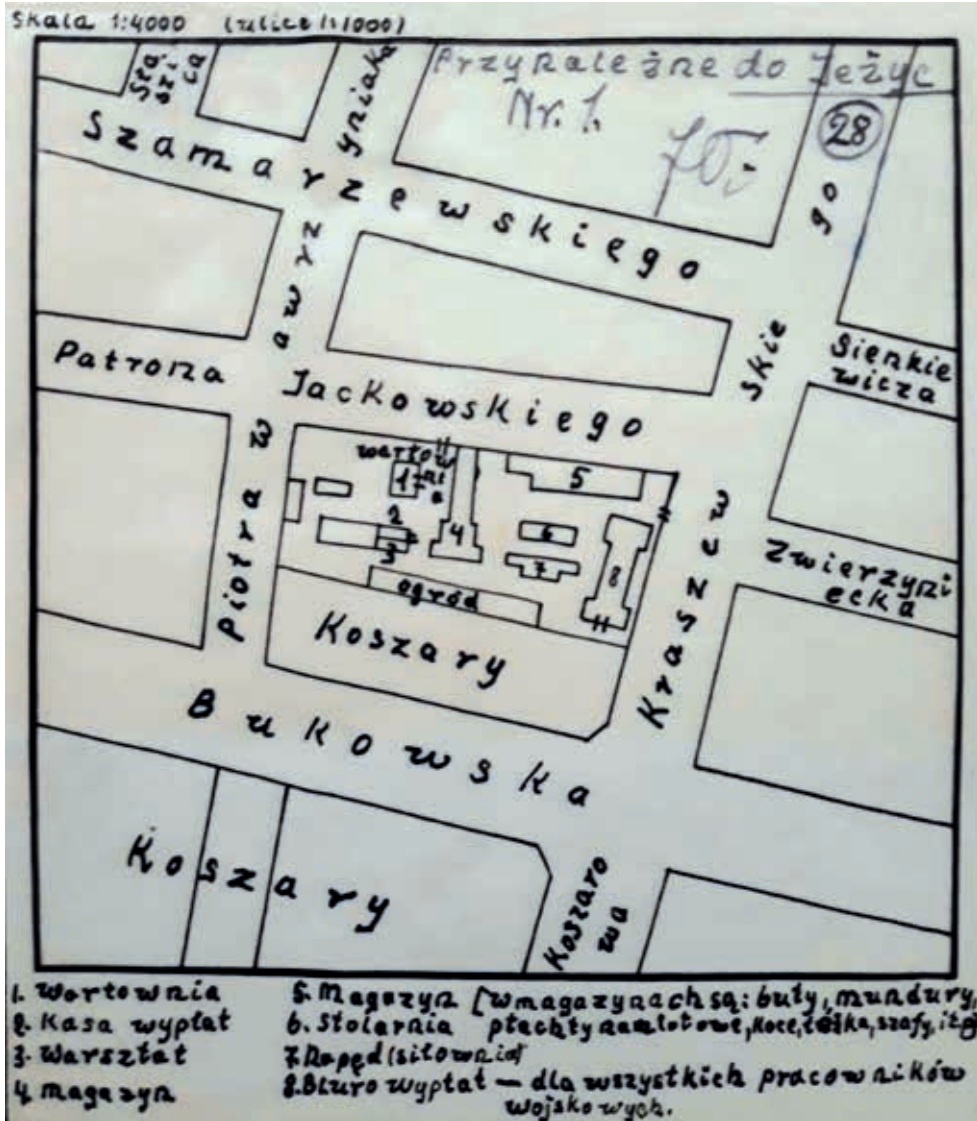 Skala 1:4000 (ulice 1:1000)
Przynależne do Jeżyc
Nr. 1.
28
Sta
szi
ca
Szamarzewskiego
Piotra wawrzyniaka
Patrona
Jackowskiego
Kraszewskiego
Sienkie
wicza
Zwierzyni
ecka
wartow
ni
a
1
2
3
4
5
6
7
8
ogród
Koszary
Bukowska
Koszary
Koszaro
wa
1. Wartownia
2. Kasa wypłat
3. Warsztat
4. magazyn
5. Magazyn [w magazynach są: buty, mundury,
6. Stolarnia płachty namiotowe, koce, łóżka, szafy, itp]
7. Napęd (siłownia)
8. Biuro wypłat — dla wszystkich pracowników
wojskowych.